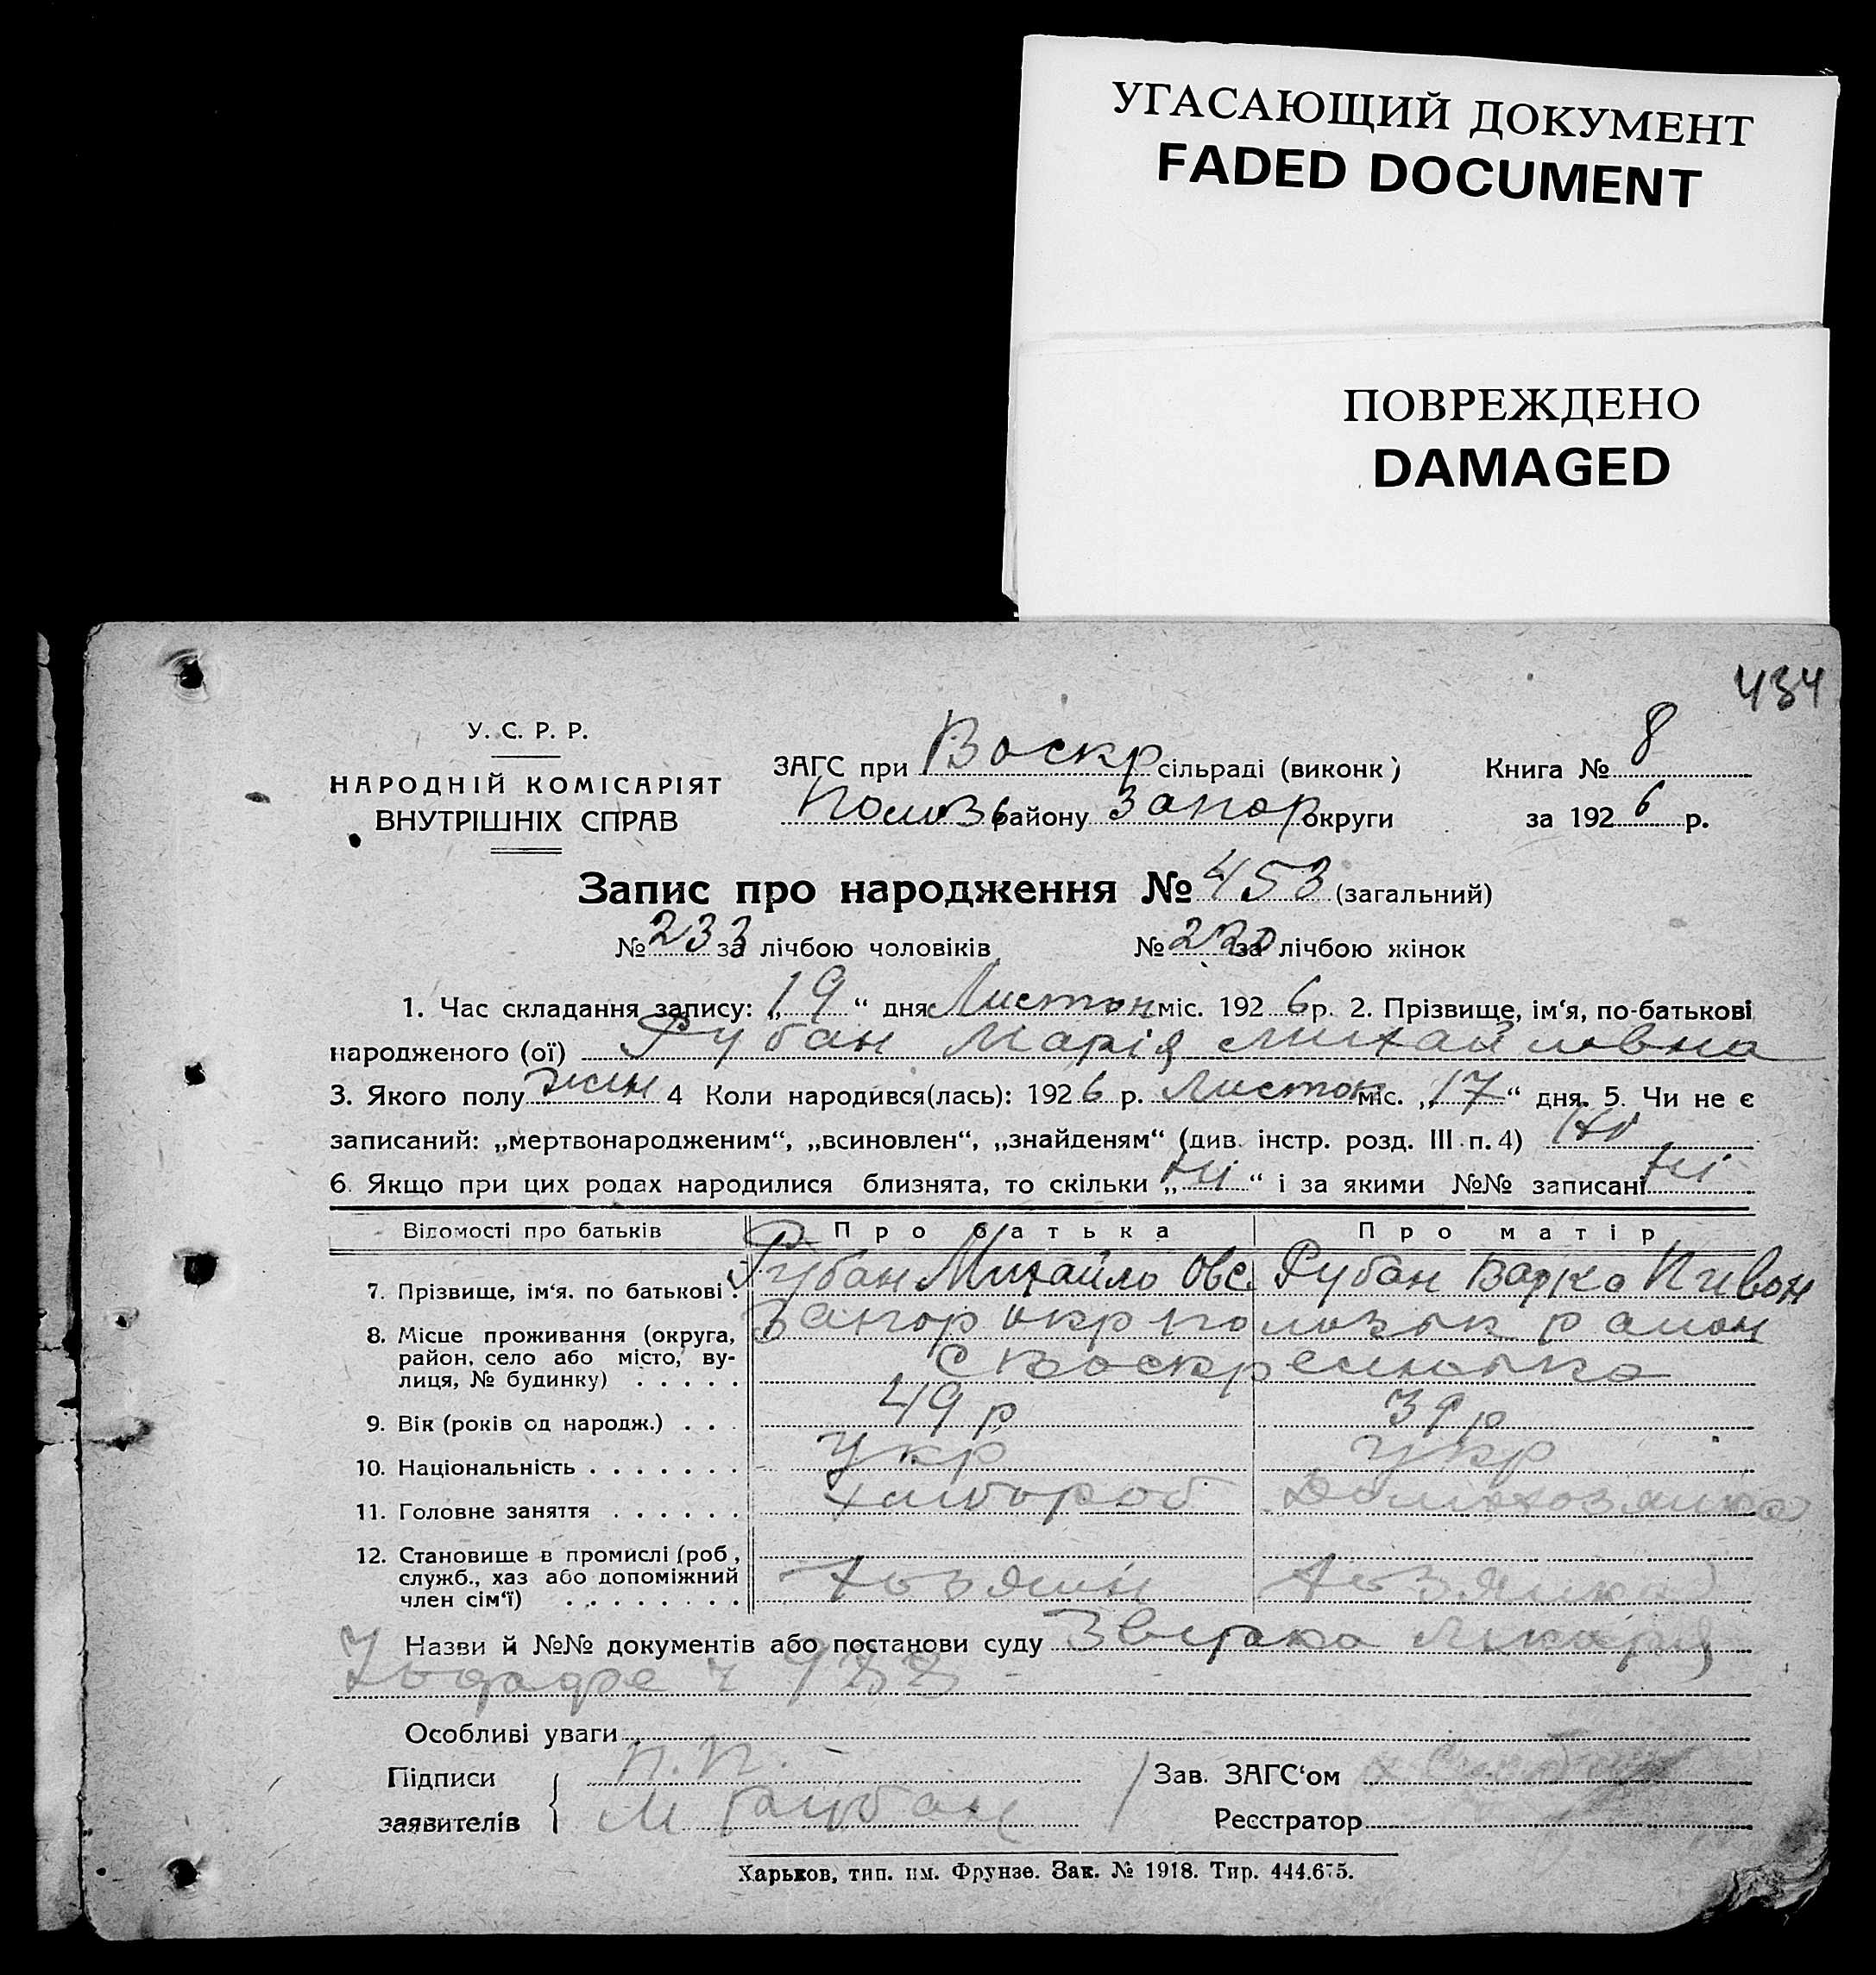 УГАСАЮЩИЙ ДОКУМЕНТ
FADED DOCUMENT
ПОВРЕЖДЕНО
DAMAGED
434
У. С. Р. Р.
НАРОДНІЙ КОМІСАРІЯТ
ВНУТРІШНІХ СПРАВ
ЗАГС при Воскр сільраді (виконк)
Книга № 8
району Запор округи
за 1926 р.
Запис про народження № 453 (загальний)
№ 233 за лічбою чоловіків № 220 за лічбою жінок
1. Час складання запису: „19“ дня Листоп міс. 1926 р. 2. Прізвище, ім‘я, по-батькові
народженого (ої) Рубан Марія Михайловна
3. Якого полу жин 4 Коли народився(лась): 1926 р. Листоп міс. „17“ дня. 5. Чи не є
записаний: „мертвонародженим“, „всиновлен“, „знайденям“ (див. інстр. розд. III п. 4) Ні
6. Якщо при цих родах народилися близнята, то скільки „ні“ і за якими №№ записані ні
Відомості про батьків Про батька Про матір
7. Прізвище, ім‘я. по батькові. Рубан Михайло Овс. Рубан Варка Пивон
8. Місце проживання (округа, Запор окр район
район, село або місто, ву- с
лиця, № будинку) . . . . .
9. Вік (років од народж.) . . . 49 р 39 р
10. Національність . . . . . . . Укр Укр
11. Головне заняття . . . . . . Хлибороб Домохозяика
12. Становище в промислі (роб.,
служб., хаз або допоміжний Хозяин Хозяика
член сім‘ї) . . . . . . . .
Назви й №№ документів або постанови суду
Особливі уваги
Підписи П. П. Зав. ЗАГС‘ом
заявителів М Реєстратор
Харьков, тип. им. Фрунзе. Зак. № 1918. Тир. 444.675.